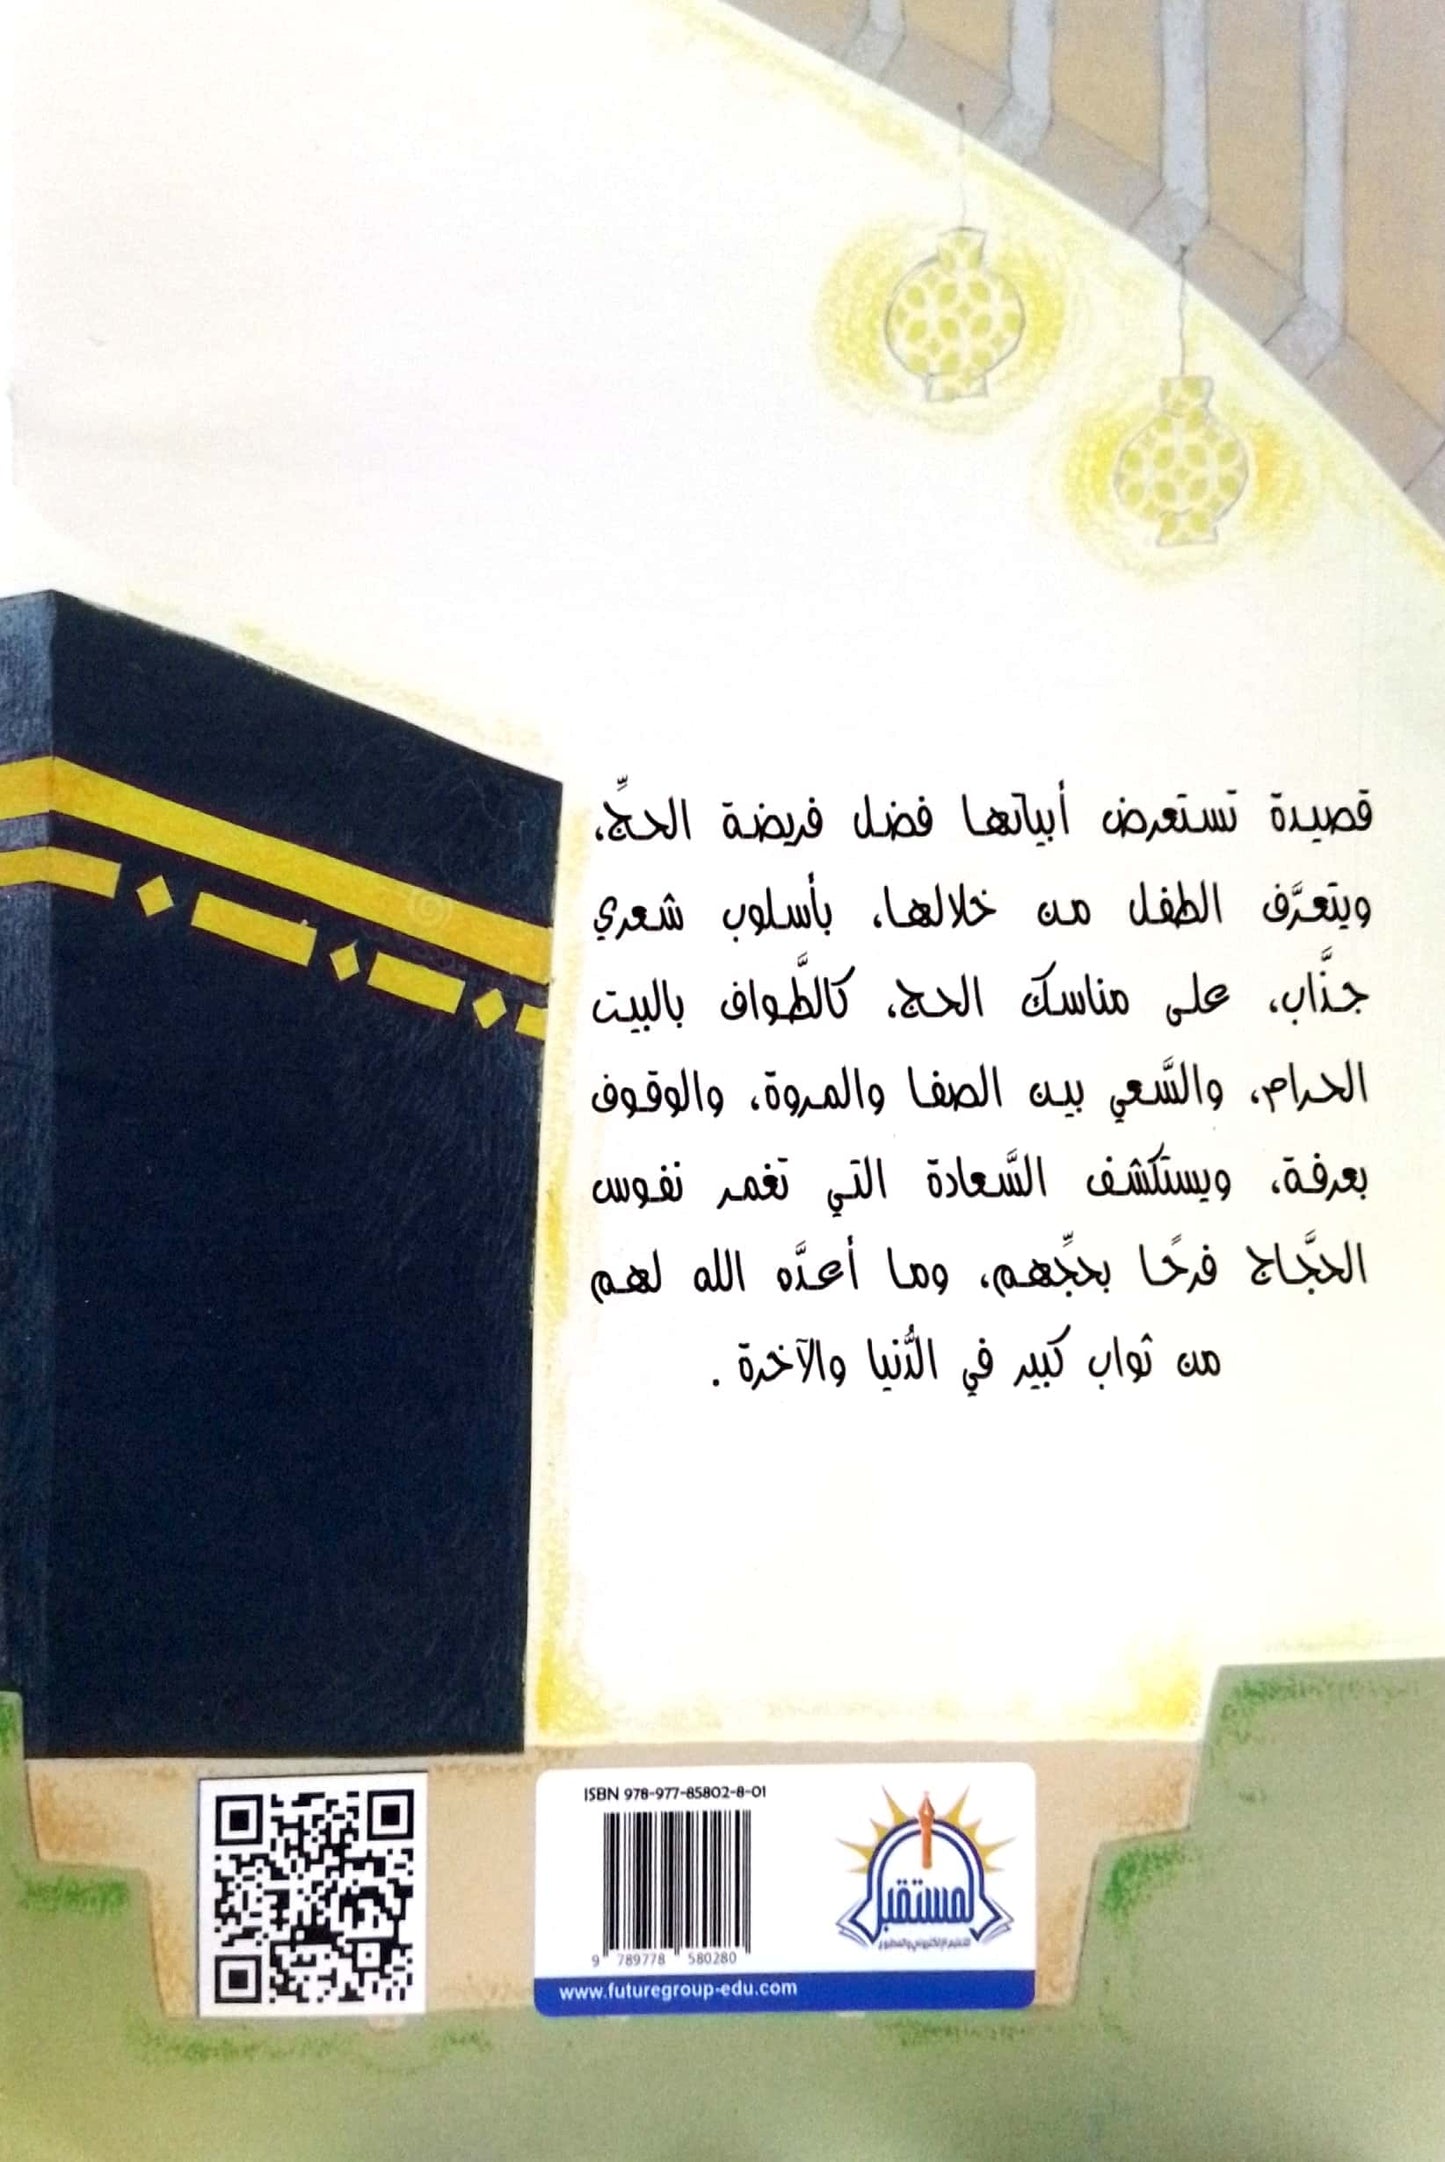 قصيدة تستعرض أبياتها فضل فريضة الحجِّ،
ويتعرَّف الطفل من خلالها، بأسلوب شعري
جذَّاب، على مناسك الحج، كالطَّواف بالبيت
الحرام، والسَّعي بين الصفا والمروة، والوقوف
بعرفة، ويستكشف السَّعادة التي تغمر نفوس
الحجَّاج فرحًا بحجِّهم، وما أعدَّه الله لهم
من ثواب كبير في الدُّنيا والآخرة .
ISBN 978-977-85802-8-01
9 789778 580280
المستقبل
للتعليم الإلكتروني والمطبوع
www.futuregroup-edu.com